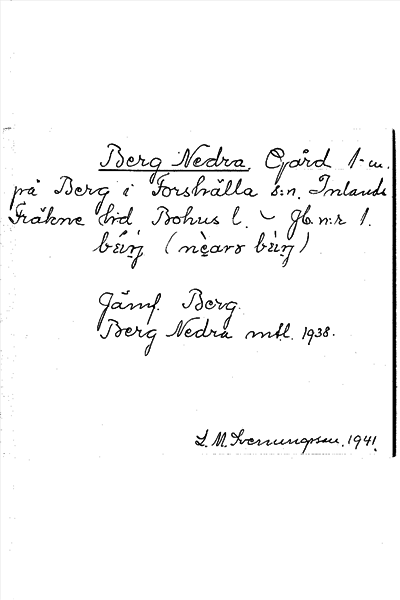 Berg Nedra. Gård 1-m.
på Berg i Forshälla s:n. Inlands
Fräkne hd Bohus l. – Jb. n:r 1.
Jämf. Berg.
Berg Nedra mtl. 1938.
L. M. Svenungsson. 1941.